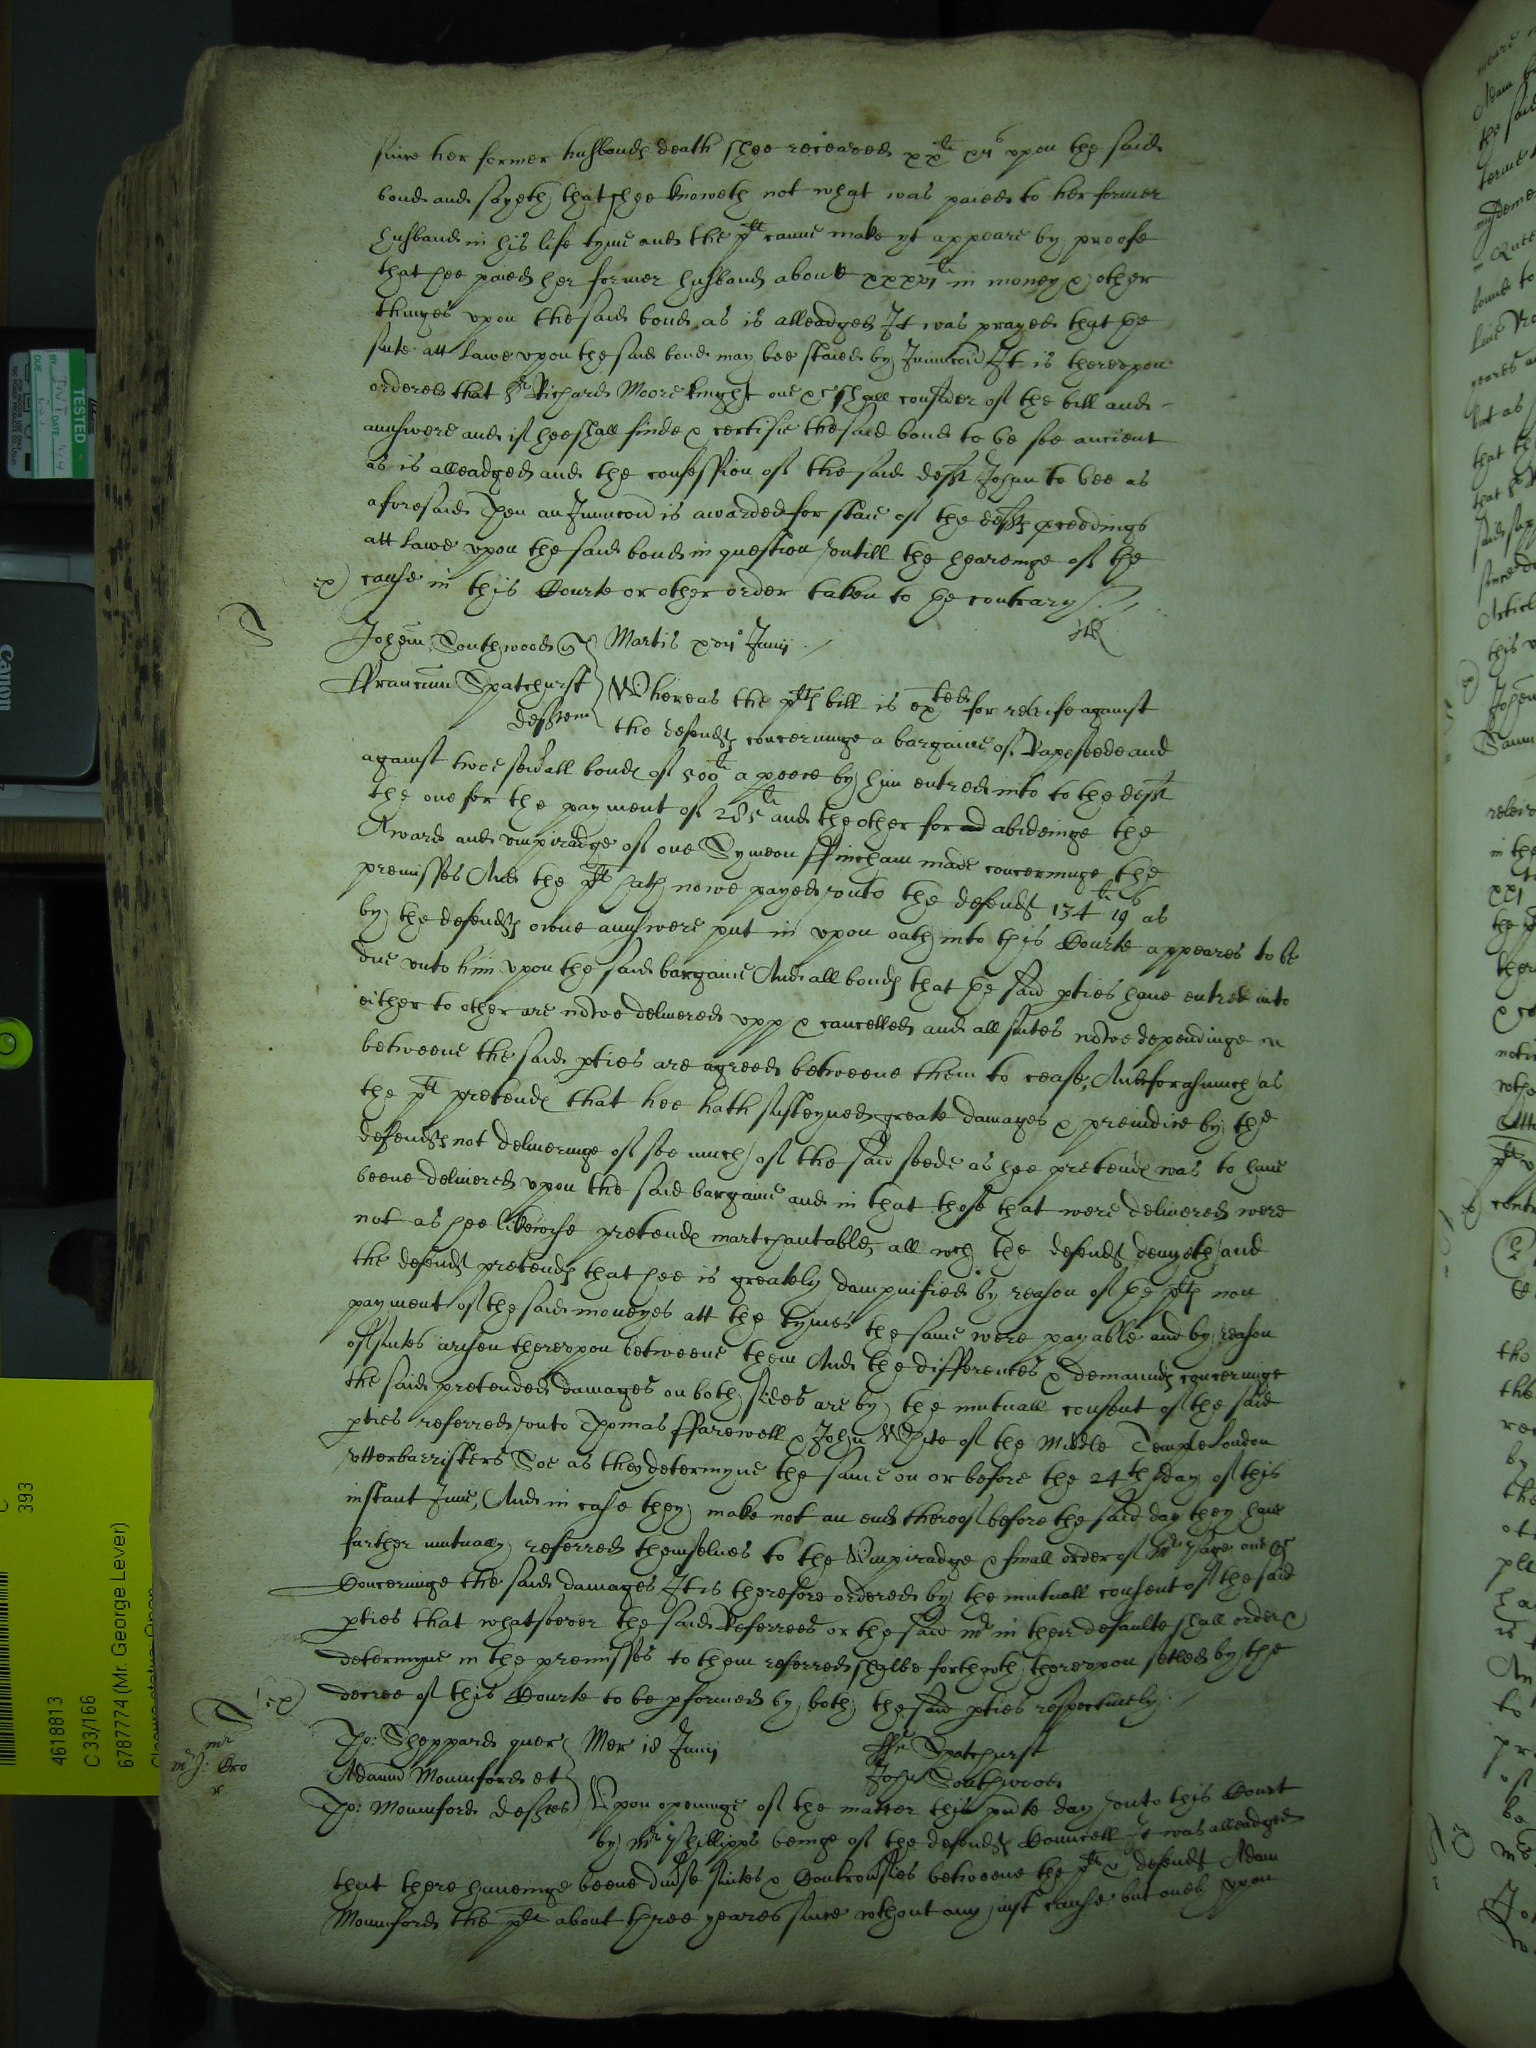 since her former husbands death shee receaved xxli xs upon the said
bond and sayeth that shee knoweth not what was paied to her former
husband in his life tyme and the plt canne make yt appeare by proofe
that hee paied her former husband about xxxvjli in money & other
thinges upon the said bond as is alleadged It was prayed that the
sute att Lawe upon the said bond may bee staied by Iniunccon It is thereupon
ordered that Sr Richard Moore knight one &c shall consider of the bill and
answere and if hee shall finde & certifie the said bond to be soe ancient
as is alleadged and the confession of the said deft Johan to bee as
aforesaid Then an Iniunccon is awarded for staie of the defts pceedings
att Lawe upon the said bond in question untill the hearinge of the
cause in this Courte or other order taken to the contrary
Johem Southwood quer Martis xvijo Junij
ffrancum Spatchurst Whereas the plts bill is exted for releife against
defftem the defendt concerninge a bargaine of Rapeseede and
against twoe sevall bonds of 500li a peece by him entred into to the deft
the one for the payment of 285li and the other for abideinge the
Award and umpiradge of one Symeon ffincham made concerninge the
premisses And the plt hath nowe payed unto the defendt 134li 19s as
by the defendts owne answere put in upon oath into this Courte appeares to be
due unto him upon the said bargaine And all bonds that the said pties have entred into
either to other are nowe delivered upp & cancelled and all suites nowe dependinge in
betweene the said pties are agreed betweene them to cease, And forasmuch as
the plt pretends that hee hath susteyned greate damages & preiudice by the
defendts not deliveringe of soe much of the said seede as hee pretends was to have
beene delivered upon the said bargaine and in that those that were delivered were
not as hee likewise pretends martchantable, all wch the defendt denyeth, and
the defendt pretends that hee is greately dampnified by reason of the plts non
payment of the said moneyes att the tymes the same were payable and by reason
of suites arisen thereupon betweene them And the differences & demaunds concerninge
the said pretended damages on both sides are by the mutuall consent of the said
pties referred unto Thomas ffarewell & John White of the Middle Temple London
utterbarristers Soe as they determyne the same on or before the 24th day of this
instant June, And in case they make not an end thereof before the said day they have
farther mutually referred themselves to the Umpiradge & finall order of Mr Page one &c
Concerninge the said damages It is therefore ordered by the mutuall consent of the said
pties that whatsoever the said Referrees or the said Mr in their defaulte shall order &
determyne in the premisses to them referred shalbe forthwth thereupon setled by the
decree of this Courte to be pformed by both the said pties respectively
Tho: Sheppard quer Mer 18 Junij ffr Spatchurst
Adamu Mountford et John Southwood
Tho: Mountford deftes Upon openinge of the matter this pnte day unto this Court
by Mr Phillipps beinge of the defendts Councell It was alleadged
that there haveinge beene divse suites & Controvsies betweene the plt & defendt Adam
Mountford the plt about three yeares since without any iust cause but onely upon
TESTED
Canon
393
4618813
C 33/166
6787774 (Mr. George Lever)